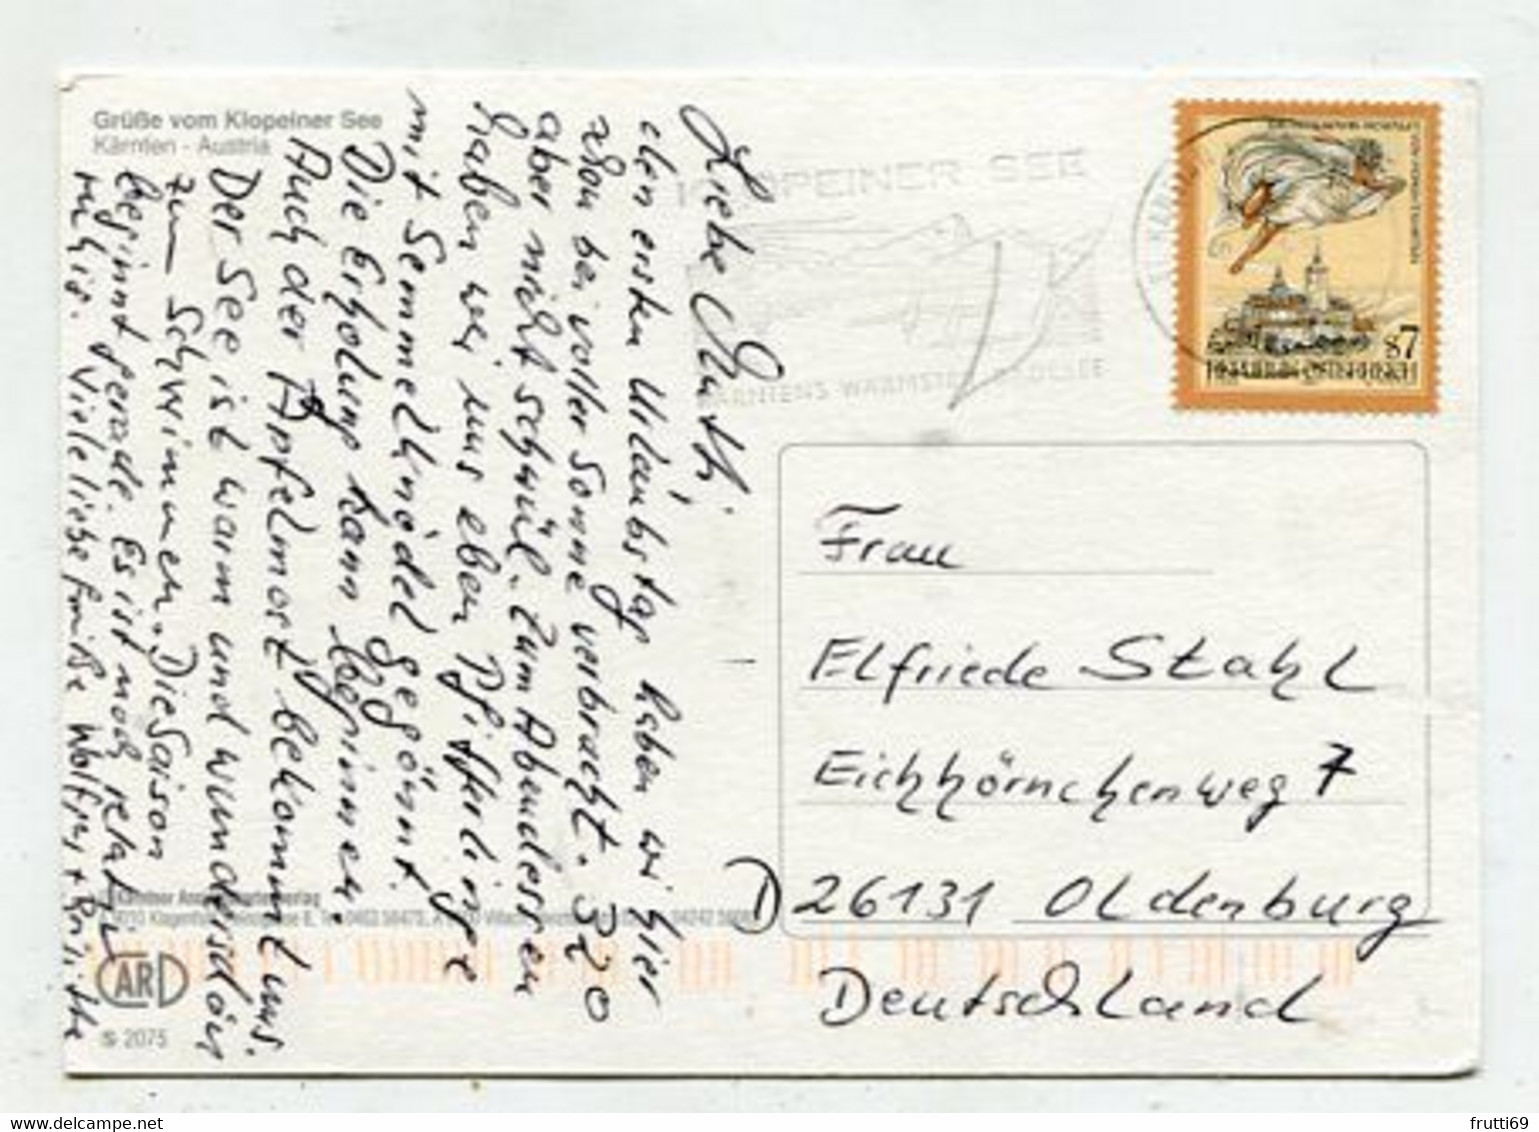 Grüße vom Klopeiner See
Kärnten - Austria
Liebe Mutti,
den ersten Urlaubstag haben wir hier
schon bei voller Sonne verbracht. 32°
aber nicht schwül. Zum Abendessen
haben wir uns eben Pfifferlinge
mit Semmelknödel gegönnt.
Die Erholung kann beginnen
Auch der Apfelmost bekommt uns.
Der See ist warm und wunderschön
zum Schwimmen. Die Saison
beginnt gerade. Es ist noch relativ
ruhig. Viele liebe Grüße Wolfg. + Brigitte
KLOPEINER SEE
KÄRNTENS WARMSTER BADESEE
S7
REPUBLIK ÖSTERREICH
Frau
Elfriede Stahl
Eichhörnchenweg 7
D 26131 Oldenburg
Deutschland
CARD
S 2075
delcampe.net
frutti69